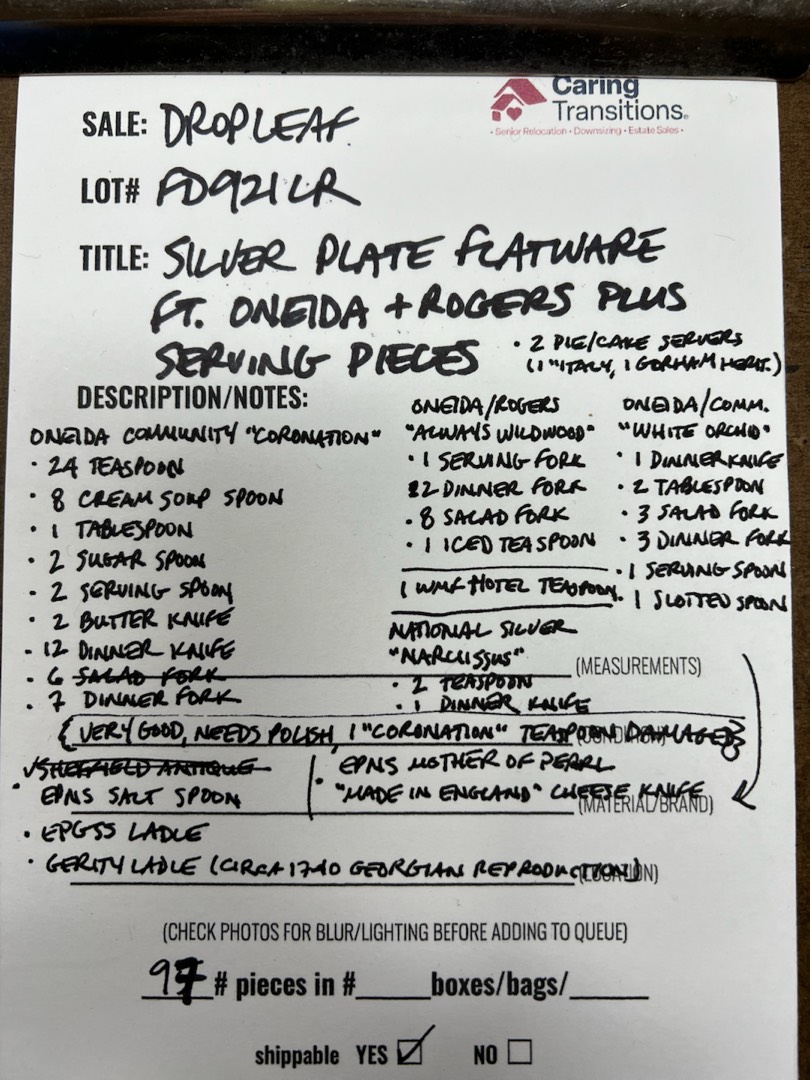 Caring
Transitions®
• Senior Relocation • Downsizing • Estate Sales •
SALE: DROPLEAF
LOT# FD921LR
TITLE: SILVER PLATE FLATWARE
FT. ONEIDA + ROGERS PLUS
SERVING PIECES
• 2 PIE/CAKE SERVERS
(1 "ITALY, 1 GORHAM HERIT.)
DESCRIPTION/NOTES:
ONEIDA COMMUNITY "CORONATION"
• 24 TEASPOON
• 8 CREAM SOUP SPOON
• 1 TABLESPOON
• 2 SUGAR SPOON
• 2 SERVING SPOON
• 2 BUTTER KNIFE
• 12 DINNER KNIFE
• 6 SALAD FORK
• 7 DINNER FORK
ONEIDA/ROGERS
"ALWAYS WILDWOOD"
• 1 SERVING FORK
12 DINNER FORK
• 8 SALAD FORK
• 1 ICED TEASPOON
1 WMF HOTEL TEASPOON.
NATIONAL SILVER
"NARCISSUS"
• 2 TEASPOON
• 1 DINNER KNIFE
ONEIDA/COMM.
"WHITE ORCHID"
• 1 DINNER KNIFE
• 2 TABLESPOON
• 3 SALAD FORK
• 3 DINNER FORK
• 1 SERVING SPOON
• 1 SLOTTED SPOON
(MEASUREMENTS)
{VERY GOOD, NEEDS POLISH, 1 "CORONATION" TEASPOON DAMAGED}
(CONDITION)
SHEFFIELD ANTIQUE
• EPNS SALT SPOON
EPNS MOTHER OF PEARL
• "MADE IN ENGLAND" CHEESE KNIFE
(MATERIAL/BRAND)
• EPGSS LADLE
• GERITY LADLE (CIRCA 1740 GEORGIAN REPRODUCTION)
(LOCATION)
(CHECK PHOTOS FOR BLUR/LIGHTING BEFORE ADDING TO QUEUE)
97 # pieces in #_____boxes/bags/_____
shippable YES ☑ NO ☐